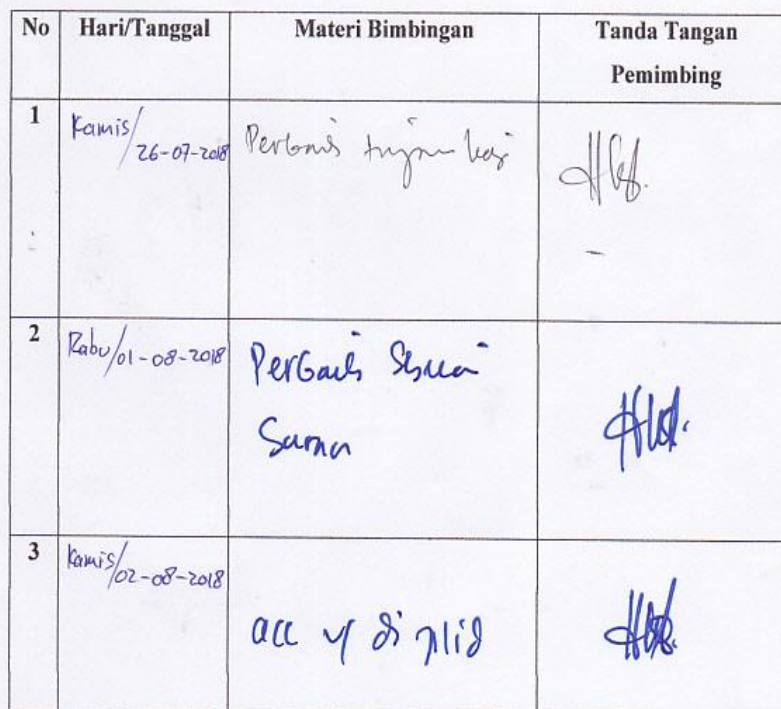 No Hari/Tanggal Materi Bimbingan Tanda Tangan
Pemimbing
1 Kamis/ 26-07-2018 Perbaiki
2 Rabu/01-08-2018 Perbaiki Sesuai
Saran
3 Kamis/02-08-2018
acc